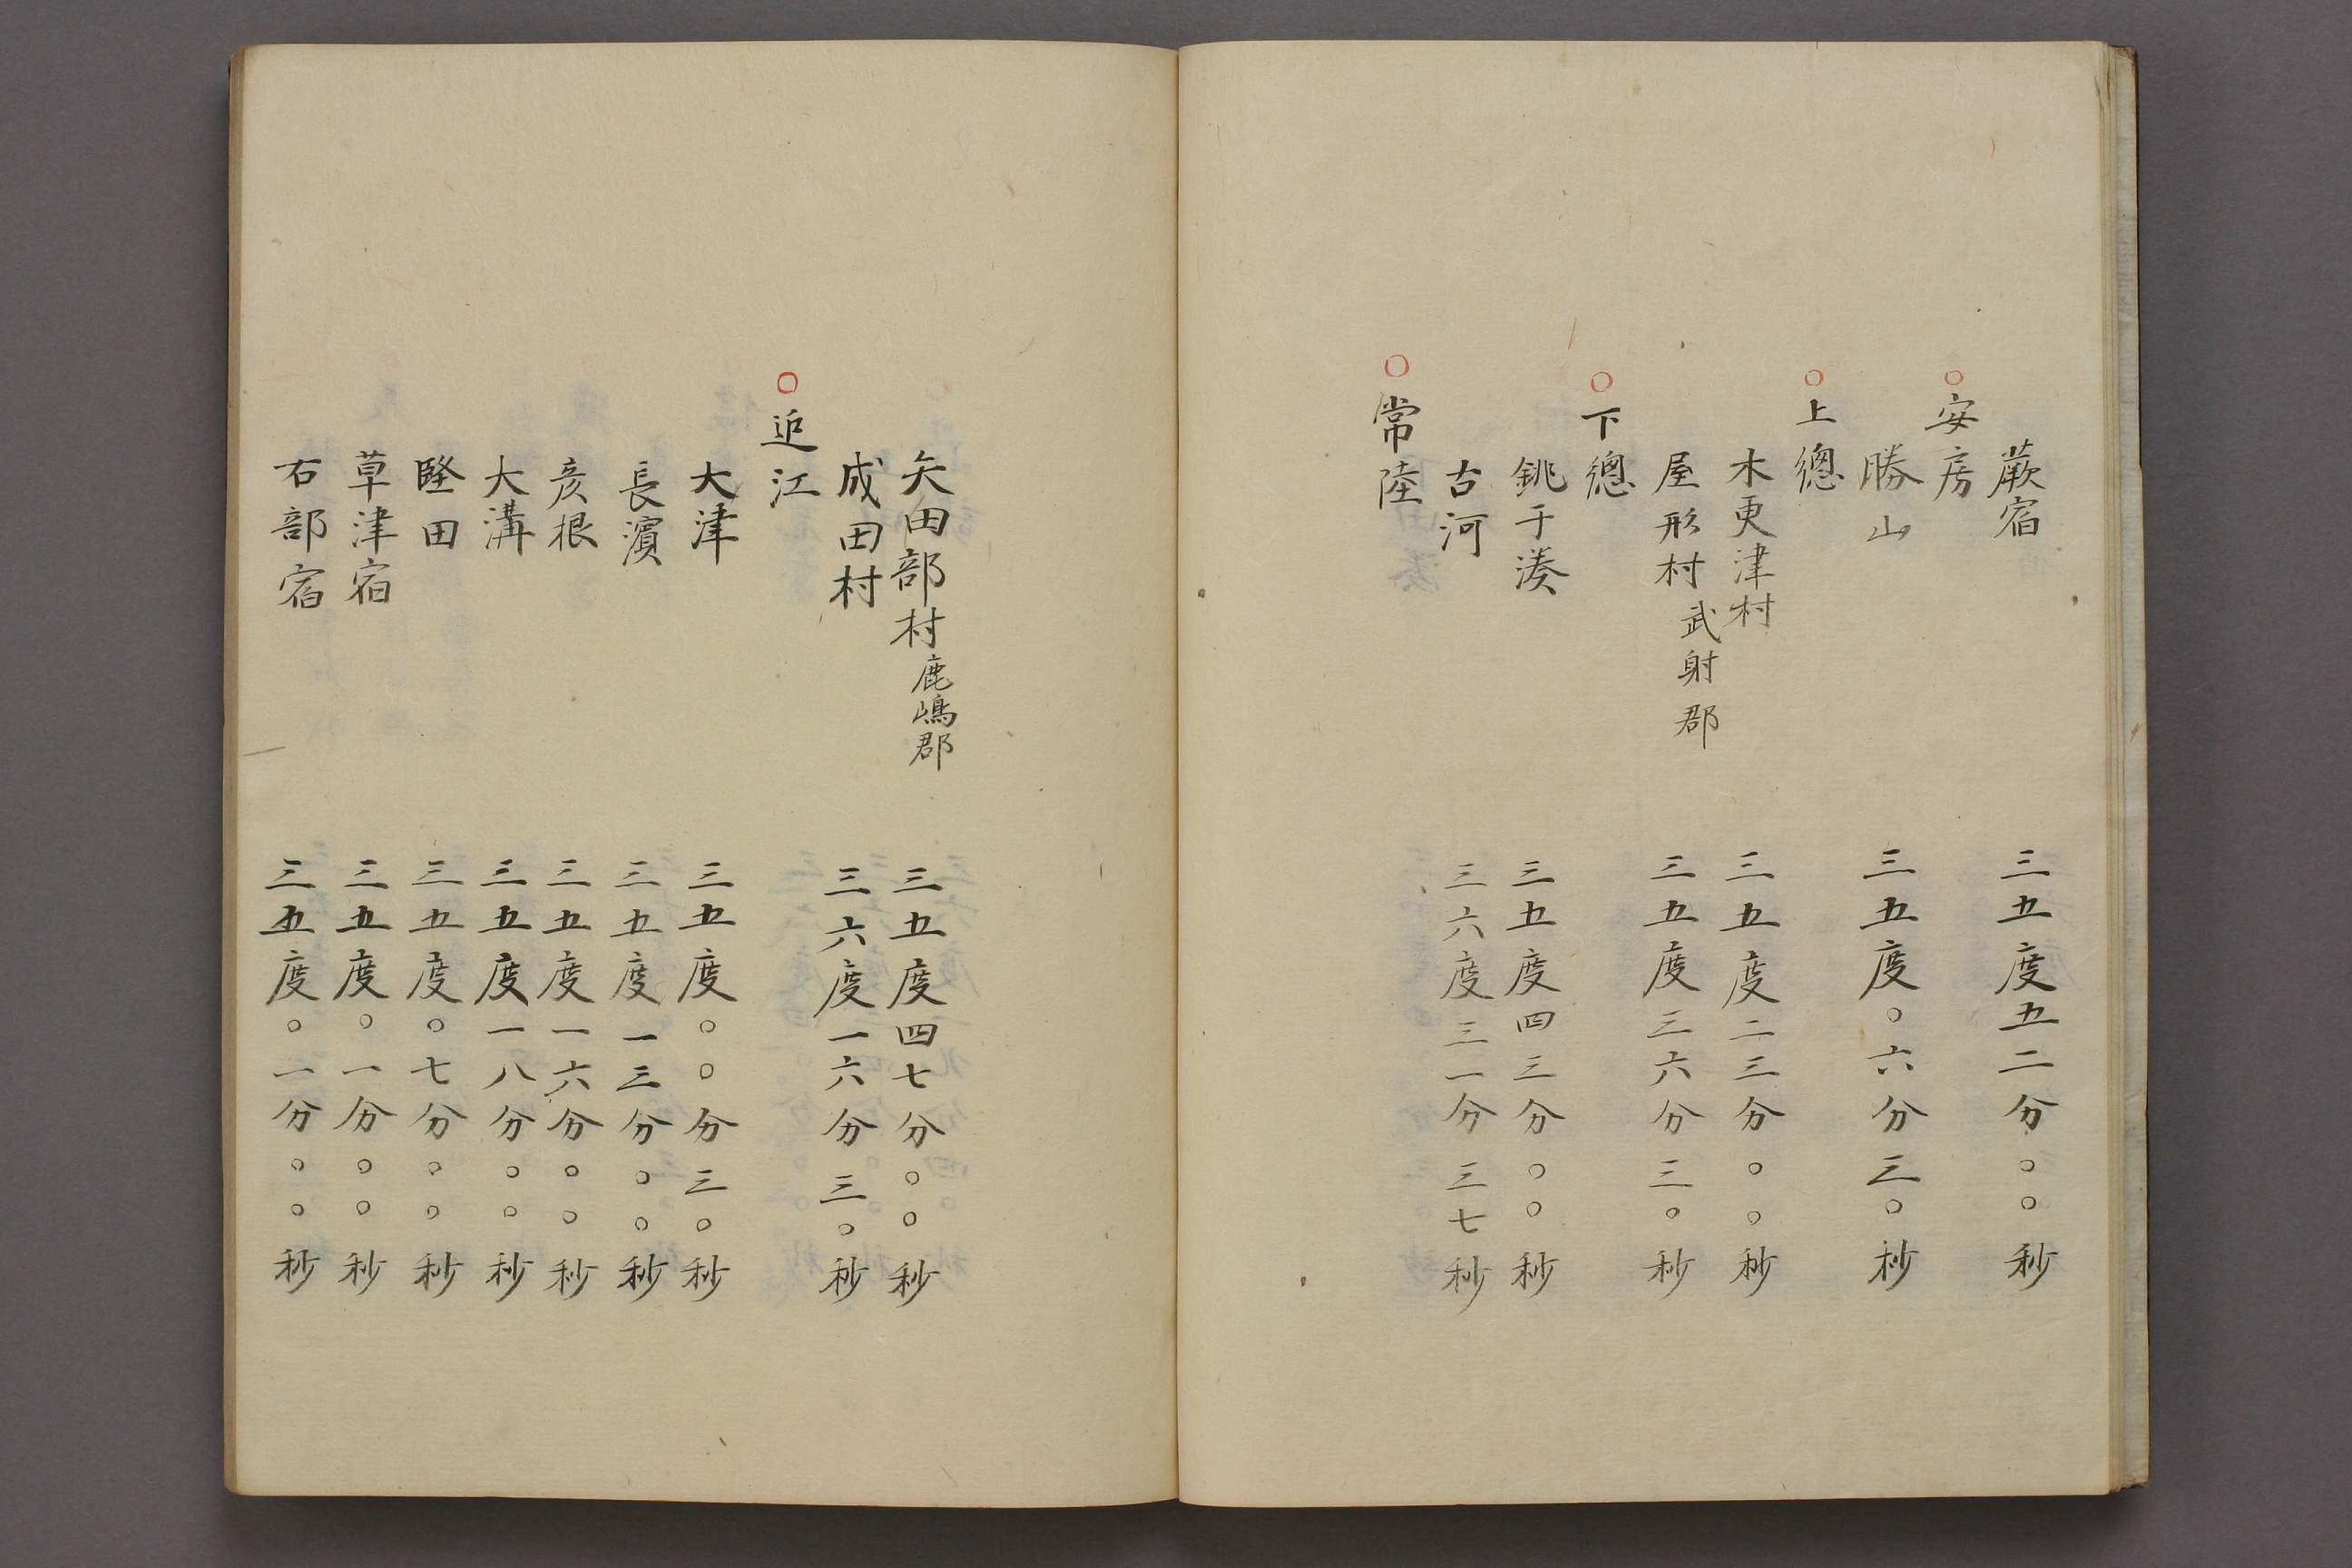 蕨宿 三五度五二分〇〇秒
〇安房
勝山 三五度〇六分三〇秒
〇上總
木更津村 三五度二三分〇〇秒
屋形村 武射郡 三五度三六分三〇秒
〇下總
銚子湊 三五度四三分〇〇秒
古河 三六度三一分三七秒
〇常陸
矢田部村 鹿嶋郡 三五度四七分〇〇秒
成田村 三六度一六分三〇秒
〇近江
大津 三五度〇〇分三〇秒
長濱 三五度一三分〇〇秒
彦根 三五度一六分〇〇秒
大溝 三五度一八分〇〇秒
堅田 三五度〇七分〇〇秒
草津宿 三五度〇一分〇〇秒
石部宿 三五度〇一分〇〇秒